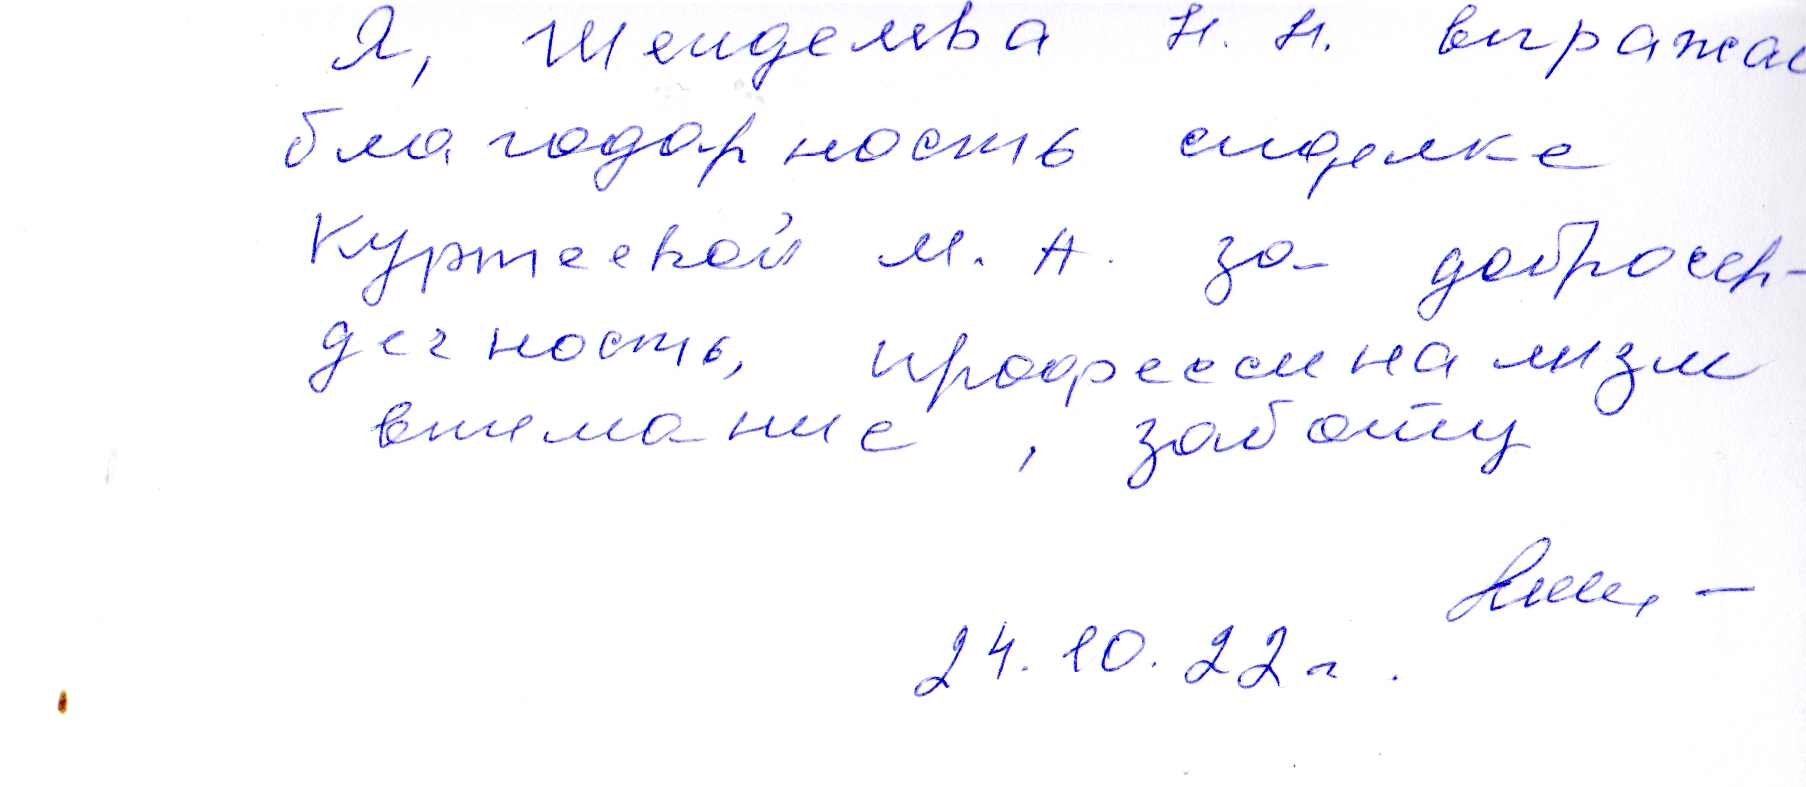 Я, Шейделева Н. Н. выражаю
благодарность сиделке
Куртеевой М. А. за добросер-
дечность, професси нализм
внимание, заботу
24.10.22 г.